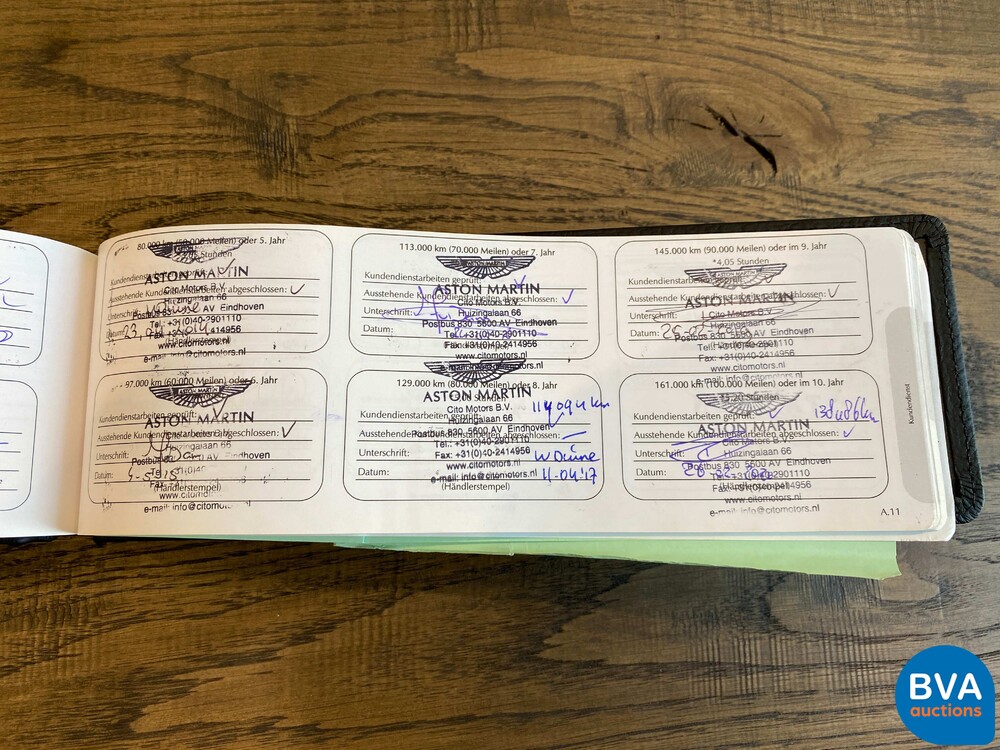 80.000 km (50.000 Meilen) oder 5. Jahr
Kundendienstarbeiten geprüft:
ASTON MARTIN
Ausstehende Kundendienstarbeiten abgeschlossen: ✓
Cito Motors B.V.
Huizingalaan 66
Postbus 830 5600 AV Eindhoven
Tel.: +31(0)40-2901110
Datum:
2414956
(Händlerstempel)
www.citomotors.nl
e-mail: info@citomotors.nl
97.000 km (60.000 Meilen) oder 6. Jahr
Kundendienstarbeiten geprüft:
ASTON MARTIN
Ausstehende Kundendienstarbeiten abgeschlossen: ✓
Unterschrift:
Huizingalaan 66
AV Eindhoven
Datum:
www.citomotors.nl
e-mail: info@citomotors.nl
113.000 km (70.000 Meilen) oder 7. Jahr
ASTON MARTIN
Kundendienstarbeiten geprüft: ✓
ASTON MARTIN
Ausstehende Kundendienstarbeiten abgeschlossen: ✓
Cito Motors B.V.
Unterschrift:
Huizingalaan 66
Postbus 830 5600 AV Eindhoven
Datum:
Tel.: +31(0)40-2901110
Fax: +31(0)40-2414956
www.citomotors.nl
e-mail: info@citomotors.nl
129.000 km (80.000 Meilen) oder 8. Jahr
ASTON MARTIN
Cito Motors B.V.
Kundendienstarbeiten geprüft:
Huizingalaan 66
Ausstehende Kundendienstarbeiten abgeschlossen:
Postbus 830 5600 AV Eindhoven
Tel.: +31(0)40-2901110
Unterschrift:
Fax: +31(0)40-2414956
www.citomotors.nl
Datum:
e-mail: info@citomotors.nl
11-04-'17
(Händlerstempel)
145.000 km (90.000 Meilen) oder im 9. Jahr
*4,05 Stunden
ASTON MARTIN
Kundendienstarbeiten geprüft:
ASTON MARTIN
Ausstehende Kundendienstarbeiten abgeschlossen: ✓
Cito Motors B.V.
Unterschrift:
Huizingalaan 66
Datum:
Postbus 830 5600 AV Eindhoven
Tel.: +31(0)40-2901110
Fax: +31(0)40-2414956
www.citomotors.nl
e-mail: info@citomotors.nl
161.000 km (100.000 Meilen) oder im 10. Jahr
Kundendienstarbeiten geprüft: ✓
ASTON MARTIN
Ausstehende Kundendienstarbeiten abgeschlossen: ✓
Unterschrift:
Huizingalaan 66
Datum:
Postbus 830 5600 AV Eindhoven
Tel.: +31(0)40-2901110
Fax: +31(0)40-2414956
www.citomotors.nl
e-mail: info@citomotors.nl
Kundendienst
A.11
BVA
auctions